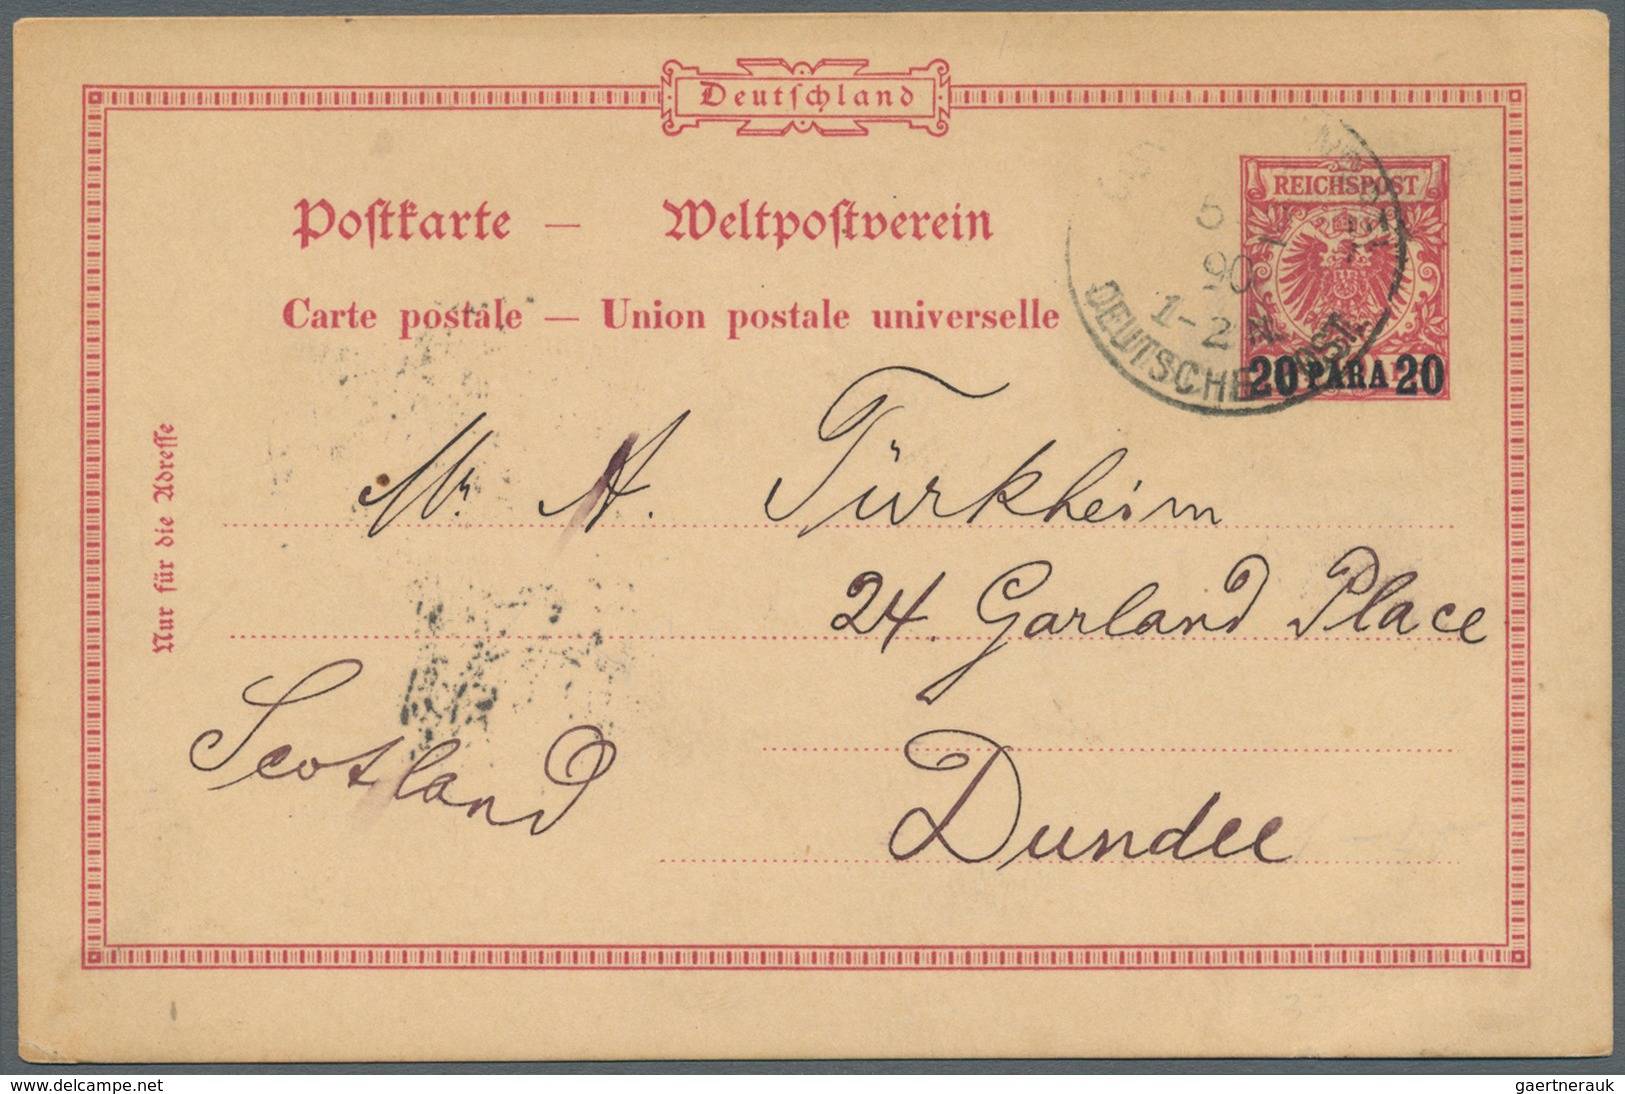 Deutſchland
REICHSPOST
Poſtkarte — Weltpoſtverein
Carte postale — Union postale universelle
5
90
1-2 N.
DEUTSCHE POST
20 PARA 20
Nur für die Adreſſe
Mr. A. Türkheim
24. Garland Place
Scotland
Dundee
www.delcampe.net
gaertnerauk